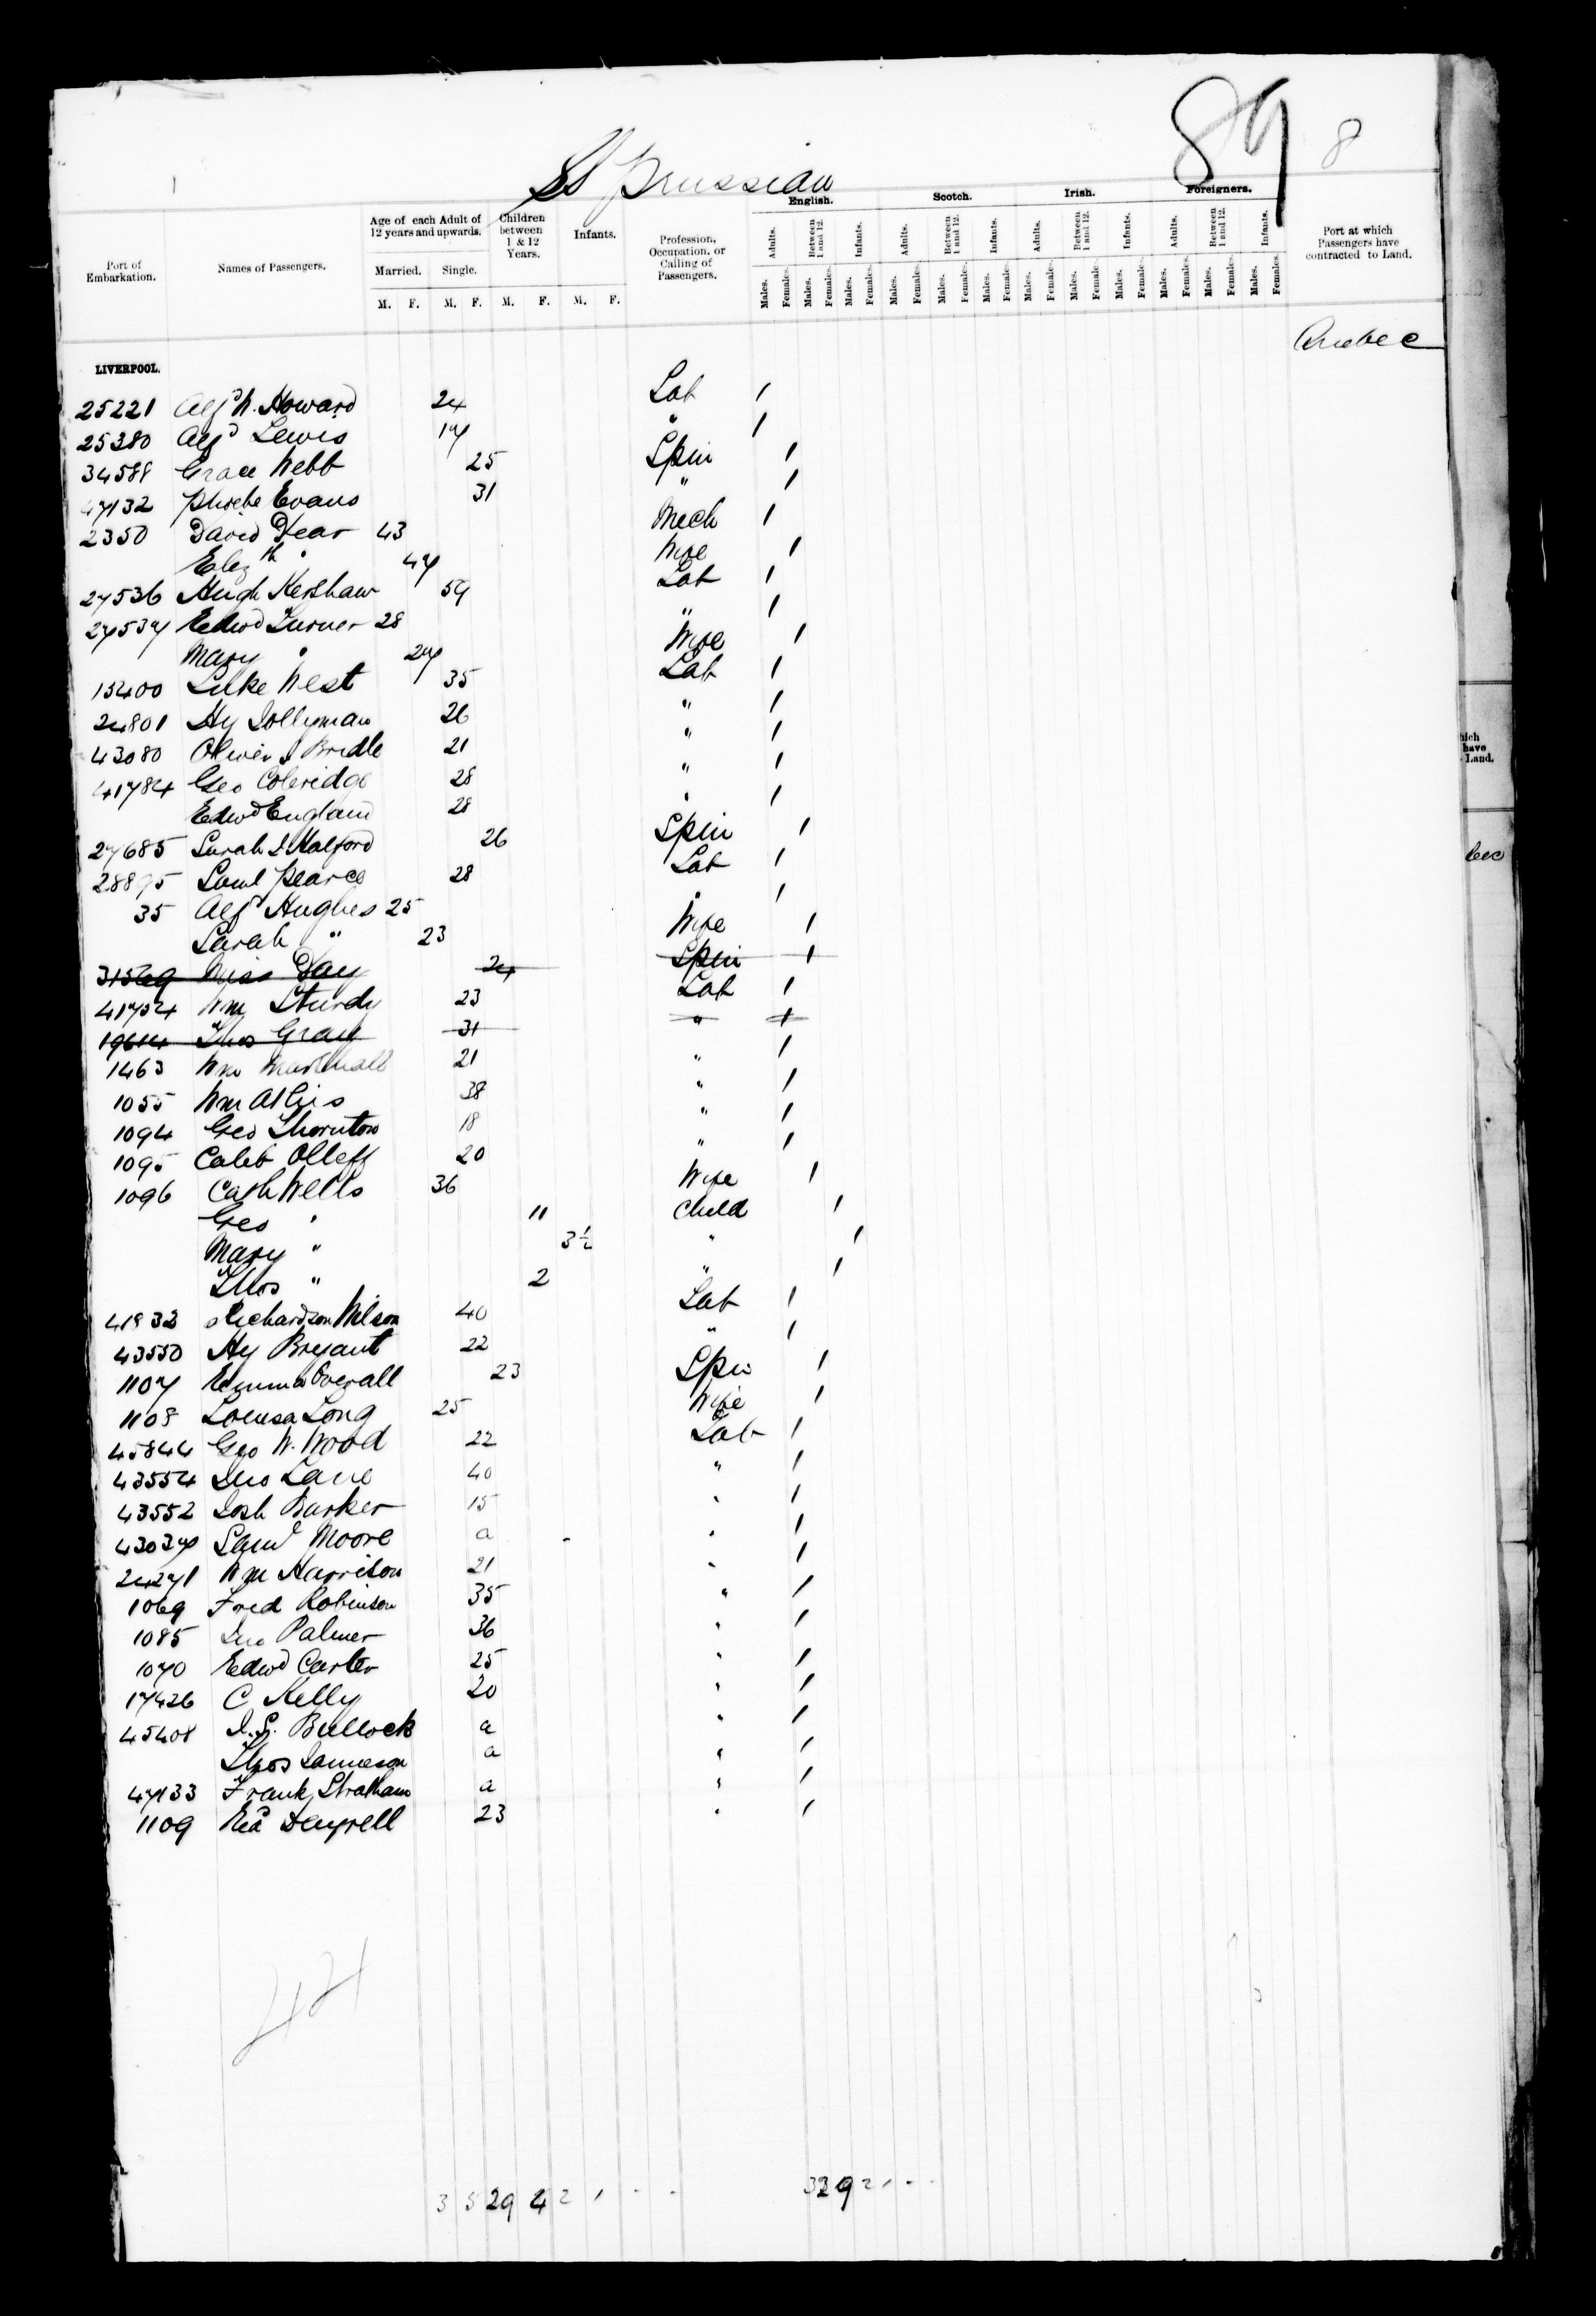 89 8
SS Prussian
Port of Embarkation. Names of Passengers. Age of each Adult of 12 years and upwards. Children between 1 & 12 Years. Infants. Profession, Occupation, or Calling of Passengers. English. Scotch. Irish. Foreigners. Port at which Passengers have contracted to Land.
Married. Single.
M. F. M. F. M. F. M. F.
Adults. Between 1 and 12. Infants. Adults. Between 1 and 12. Infants. Adults. Between 1 and 12. Infants. Adults. Between 1 and 12. Infants.
Males. Females. Males. Females. Males. Females. Males. Females. Males. Females. Males. Females. Males. Females. Males. Females. Males. Females. Males. Females. Males. Females. Males. Females.
Quebec
LIVERPOOL.
25221 Alfd W. Howard 24 Lab 1
25380 Alfd Lewis 17 " 1
34588 Grace Webb 25 Spin 1
47132 Phoebe Evans 31 " 1
2350 David Dear 43 Mech 1
Elizth " 47 Wife 1
27536 Hugh Kershaw 59 Lab 1
27537 Edwd Turner 28 " 1
Mary " 27 Wife 1
15400 Luke West 35 Lab 1
24801 Hy Jollyman 26 " 1
43080 Oliver J Bridle 21 " 1
41784 Geo Coleridge 28 " 1
Edwd England 28 " 1
27685 Sarah J Halford 26 Spin 1
28895 Saml Pearce 28 Lab 1
35 Alfd Hughes 25 " 1
Sarah " 23 Wife 1
31569 Miss Day 24 Spin 1
41754 Wm Sturdy 23 Lab 1
19614 Thos Gray 31 " 1
1463 Wm Marshall 21 " 1
1055 Wm Atkis 38 " 1
1094 Geo Thornton 18 " 1
1095 Caleb Olleff 20 " 1
1096 Cath Wells 36 Wife 1
Geo " 11 Child 1
Mary " 3½ " 1
Thos " 2 " 1
41932 Richardson Wilson 40 Lab 1
43550 Hy Bryant 22 " 1
1107 Emma Overall 23 Spin 1
1108 Louisa Long 25 Wife 1
45844 Geo W. Wood 22 Lab 1
43554 Jno Lane 40 " 1
43552 Josh Barker 15 " 1
43037 Saml Moore a " 1
24271 Wm Harrison 21 " 1
1069 Fred Robinson 35 " 1
1085 Jno Palmer 36 " 1
1070 Edwd Carter 25 " 1
17426 C Kelly 20 " 1
45408 J. S. Bullock a " 1
Thos Jamieson a " 1
47133 Frank Stratham a " 1
1109 Dayrell 23 " 1
44
3 5 29 4 2 1 - - 32 9 2 1 - -
hich
have
Land.
bec